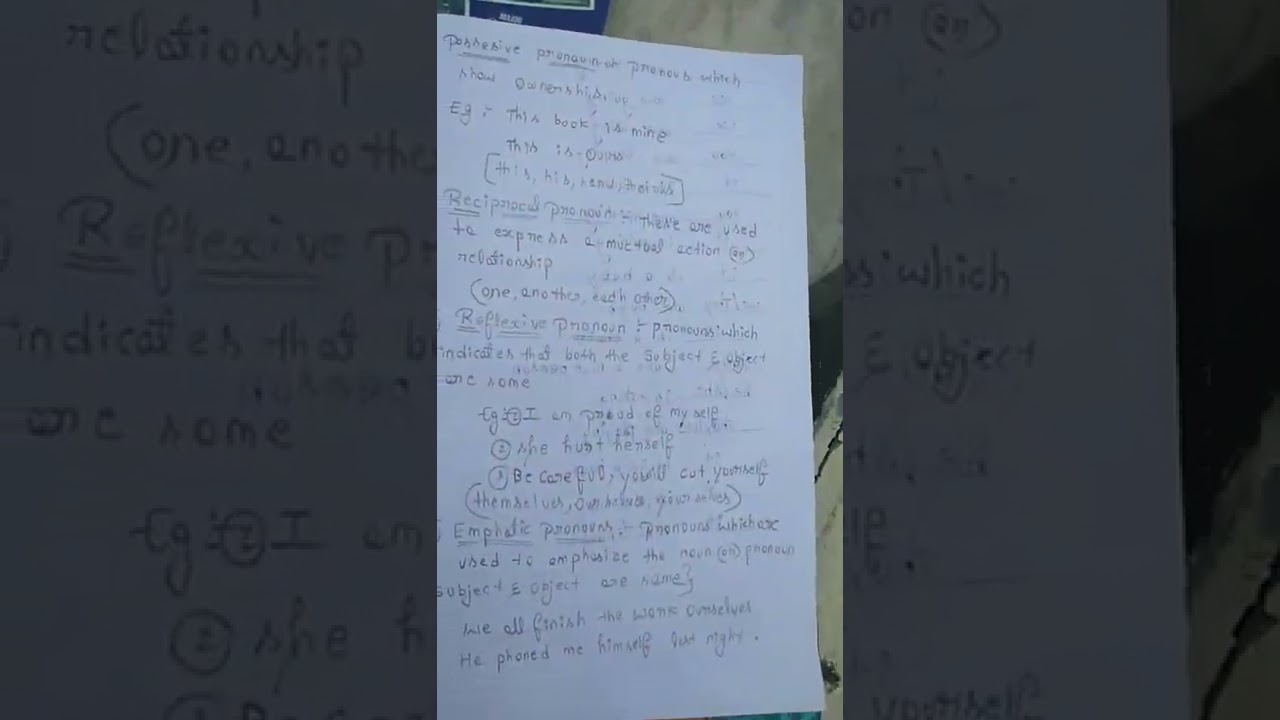 Possesive pronoun or pronous which
show Ownership
Eg :- This book is mine
This is Ours
[this, his,
Reciprocal pronoun :- These are used
to express a mutual action (or)
relationship
(one, another, each other)
Reflexive pronoun :- pronouns which
indicates that both the subject & object
are same
Eg :- ① I am proud of my self.
② She hurt herself
③ Be careful, you'll cut yourself
(themselves, ourselves, yourselves)
Emphatic pronouns :- pronouns which are
used to emphasize the noun (or) pronoun
subject & object are same}
We all finish the work ourselves
He phoned me himself last night.